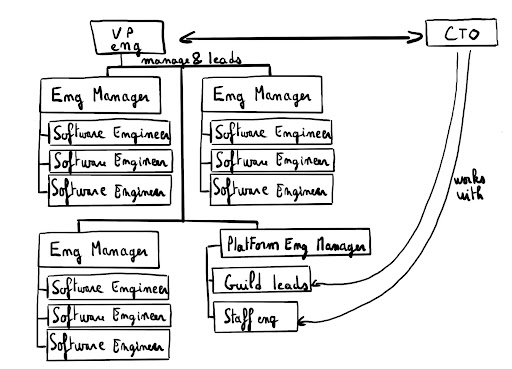 VP
eng
CTO
manage & leads
Eng Manager
Software Engineer
Software Engineer
Software Engineer
Eng Manager
Software Engineer
Software Engineer
Software Engineer
works
with
Eng Manager
Software Engineer
Software Engineer
Software Engineer
Platform Eng Manager
Guild leads
Staff eng